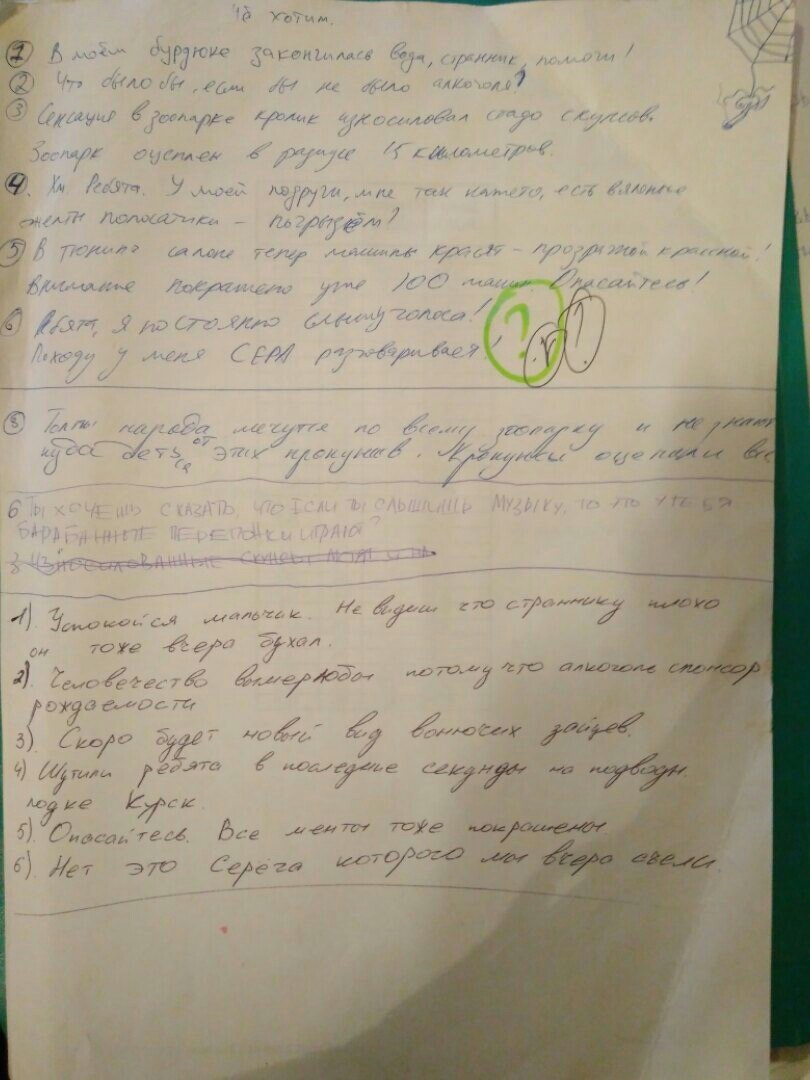 хотим.
1 В моём бурдюке закончилась вода, странник, помоги!
2 Что было бы, если бы не было алкоголя?
3 Сенсация в зоопарке кролик износиловал стадо скунсов.
Зоопарк оцеплен в радиусе 15 километров.
4. Хм Ребята. У моей подруги, мне так кажетс, есть вяленые
желты полосатики – погрызём?
5 В тюнинг салоне тепер машины красят – прозрачной краской!
Внимание покрашено уже 100 машин. Опасайтесь!
6 Ребята, я постоянно слышу голоса!
Походу у меня СЕРА разговаривает!
? .r ?
8 Толпы народа мечутся по всему зоопарку и не знают
куда деться от этих кронунсов. Кронунсы оцепили все
6 ТЫ ХОЧЕШЬ СКАЗАТЬ, ЧТО ЕСЛИ ТЫ СЛЫШИШЬ МУЗЫКУ, ТО ЭТО У ТЕБЯ
БАРАБАННЫЕ ПЕРЕПОНКИ ИГРАЮТ?
3 ИЗНОСИЛОВАННЫЕ СКУНСЫ
1). Успокойся мальчик. Не видиш что страннику плохо
он тоже вчера бухал.
2). Человечество вымерлобы потому что алкоголь спонсор
рождаемости
3). Скоро будет новый вид вонючих зайцев.
4) Шутили ребята в последние секунды на подводн.
лодке Курск.
5). Опасайтесь. Все менты тоже покрашены
6). Нет это Серёга которого мы вчера съели.